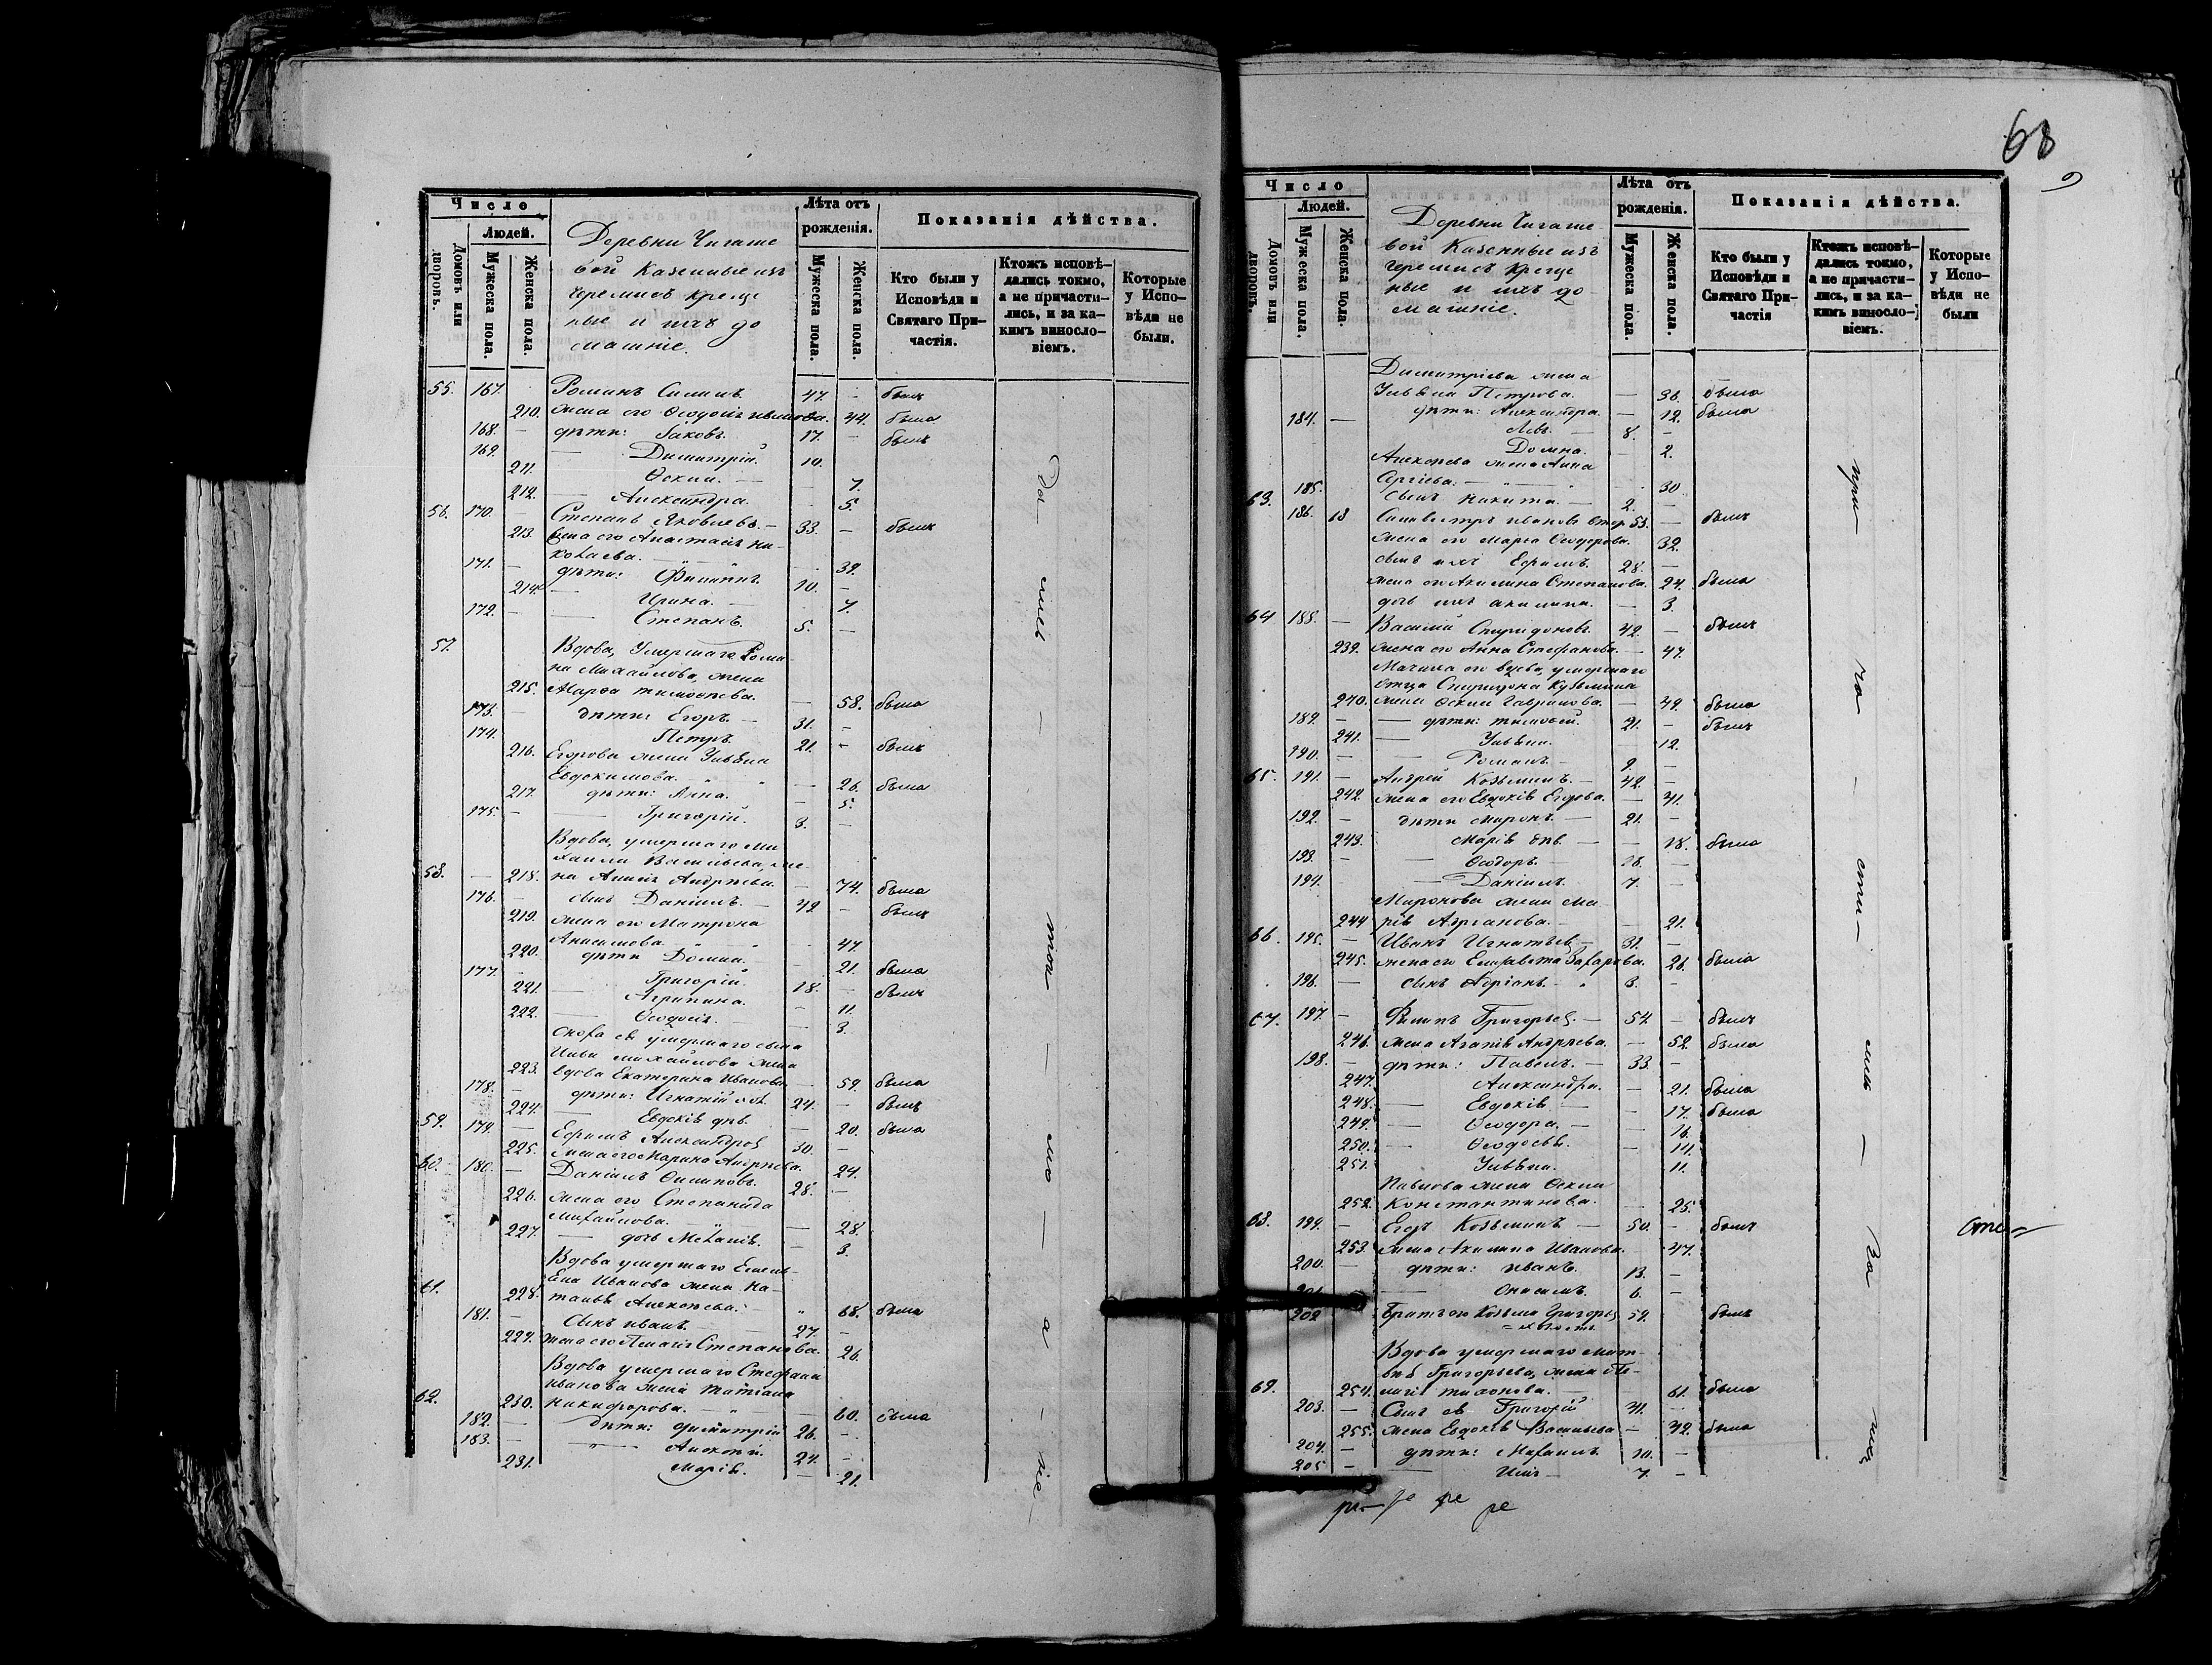 Число
Людей.
Домовъ или дворовъ.
Мужеска пола.
Женска пола.
Деревни Чигаше
вой Казенные изъ
Черемисъ креще
ные и ихъ до
машніе.
Лѣта отъ рожденія.
Мужеска пола.
Женска пола.
Показанія дѣйства.
Кто были у Исповѣди и Святаго При-
частія.
Ктожъ исповѣ-
дались токмо,
а не причасти-
лись, и за ка-
кимъ виносло-
віемъ.
Которые
у Испо-
вѣди не
были.
55. 167. Романъ Силинъ. 47. - былъ
210. жена его Ѳеодосія 44. была
168. - дѣти: Іаковъ. 17. - былъ
169. Димитрій. 10.
211. Ѳекла. - 7.
212. Александра. 5.
56. 170. - Степанъ Яковлевъ. - 33. - былъ
213. жена его Анастасія Ни-
колаева. 32.
171. - дѣти: Филиппъ. 10. -
214. Ирина. 7.
172. - Степанъ. 5. -
57. Вдова, Умершаго Рома-
на Михайлова, жена
215. Марѳа Тимоѳеева. - 58. была
173. - дѣти: Егоръ. 31. -
174. Петръ. 21. - былъ
216. Егорова жена Ульяна
Евдокимова. - 26. была
217. дѣти: Анна. - 5.
175. - Григорій. 3. -
Вдова, умершаго Ми-
хаила Васильева, же-
58. - 218. на Анна Андреева. - 74. была
176. - сынъ Даніилъ. - 42 - былъ
219. жена его Матрона
Анисимова. 47.
220. дѣти Домна. - 21. была
177. - Григорій. 18. - былъ
221. Агрипина. - 11.
222. Ѳеодосія. - 3.
сноха ея умершаго сына
Ильи Михайлова жена
223. вдова Екатерина Иванова - 52. была
178. - дѣти: Игнатій хол. 24. - былъ
224. Евдокія двв. - 20. была
59. 179. - Ефимъ Александров 30. -
225. жена его Марина Андреева. 24.
60. 180. - Даніилъ Филиповъ. 28. -
226. жена его Степанида
Михайлова. - 28.
227. дочь Меланія. - 3.
Вдова умершаго Емель-
яна Иванова жена На-
61. 228. талья Алексѣева. 68. была
181. - Сынъ Иванъ. 27. -
229. жена его Пелагія Степанова. 26.
Вдова умершаго Стефана
Иванова жена Татіана
62. 230. Никифорова. - 60. была
182. - дѣти: Димитрій 26. -
183. - Алексѣй. 24. -
231. Марія. - 21.
68
Число
Людей.
Домовъ или дворовъ.
Мужеска пола.
Женска пола.
Деревни Чигаше
вой Казенные изъ
Черемисъ креще
ные и ихъ до-
машніе.
Лѣта отъ рожденія.
Мужеска пола.
Женска пола.
Показанія дѣйства.
Кто были у Исповѣди и Святаго При-
частія
Ктожъ исповѣ-
дались токмо,
а не причасти-
лись, и за ка-
кимъ винослo-
віемъ.
Которые
у Испо-
вѣди не
были
Димитріева жена
Ульяна Петрова. - 36. была
дѣти: Александра. - 12. была
184. - Левъ. - 8. -
Домна. - 2.
Алексѣева жена Анна
Сергіева. - 30
185. сынъ Никита. - 2. -
63. 186. Силивестръ Ивановъ 53. - былъ
жена его Марѳа Ѳеодорова. 32.
сынъ ихъ Ефимъ. 28. -
жена его Акилина Степанова. 24. была
дочь ихъ Акилина. - 3.
64 188. - Василій Спиридоновъ 42. - былъ
239. жена его Анна Стефанова. - 47.
Мачиха его вдова, умершаго
Отца Спиридона Кузьмина
240. жена Ѳекла Гаврилова. - 42. была
189. - дѣти: Тимоѳей. 21. - былъ
241. Ульяна. - 12.
190. - Романъ. 9. -
65. 191. - Андрей Козьминъ. - 42. -
242. жена его Евдокія Егорова. - 41.
192. - дѣти Миронъ. - 21. -
243. Марія двв. - 18. была
193. - Ѳеодоръ. 18. -
194. Даніилъ 7. -
Миронова жена Ма
244 рія Адріанова. - 21.
66. 195. - Иванъ Игнатьев - 31. -
245. жена его Елисавета Захарова. 26. была
196. - сынъ Адріанъ. 3. -
67. 197. - Филипъ Григорьев. - 54. - былъ
246. жена Агапія Андреева. - 52. была
198. - дѣти: Павелъ. - 33. -
247. Александра. - 21. была
248. Евдокія - 17. была
249. Ѳеодора. - 16.
250. Ѳеодосья. - 14.
251. Ульяна. 11.
Павлова жена Ѳекла
252. Константинова. - 25.
68. 199. - Егоръ Козьминъ - 50. - былъ
253. жена Акилина Иванова. 47.
200. - дѣти: Иванъ. 13. -
201. Онисимъ. 6. -
202 Братъ его Козьма Григорьев 59. былъ
Вдова умершаго Мат-
вѣя Григорьева, жена Пе-
69. 254. лагія Тихонова. 61. была
203. - Сынъ ея Григорій 41. -
255. жена Евдокія Васильева - 42. была
204. - дѣти: Михаилъ 10. -
205 - Илія 7. -